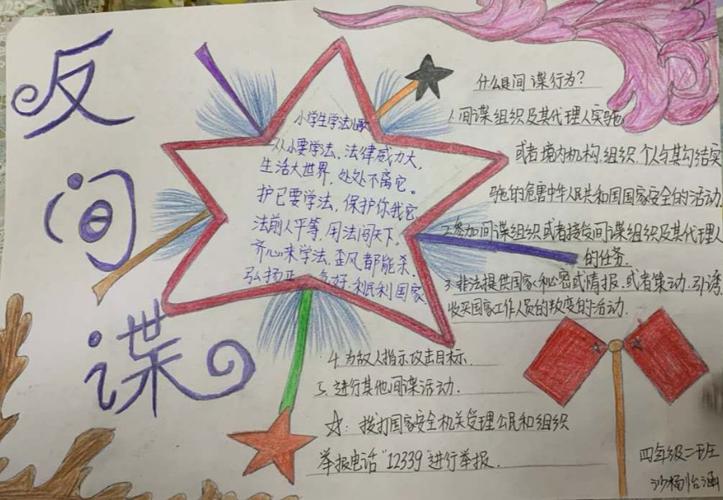 反间谍
小学生学法儿歌
从小要学法,法律威力大,
生活大世界,处处不离它。
护己要学法,保护你我它
法前人平等,用法闯天下,
齐心来学法,歪风都能杀.
弘扬正 多好,利民利国家
什么是间谍行为?
1.间谍组织及其代理人实施
或者境内机构、组织、个人与其勾结实
施的危害中华人民共和国国家安全的活动.
2.参加间谍组织或者接受间谍组织及其代理人
的任务.
3.非法提供国家秘密或情报,或者策动、引诱、
收买国家工作人员的叛变的活动.
4.为敌人指示攻击目标.
5.进行其他间谍活动.
☆:拨打国家安全机关受理公民和组织
举报电话"12339"进行举报.
四年级二班
沙杨怡涵